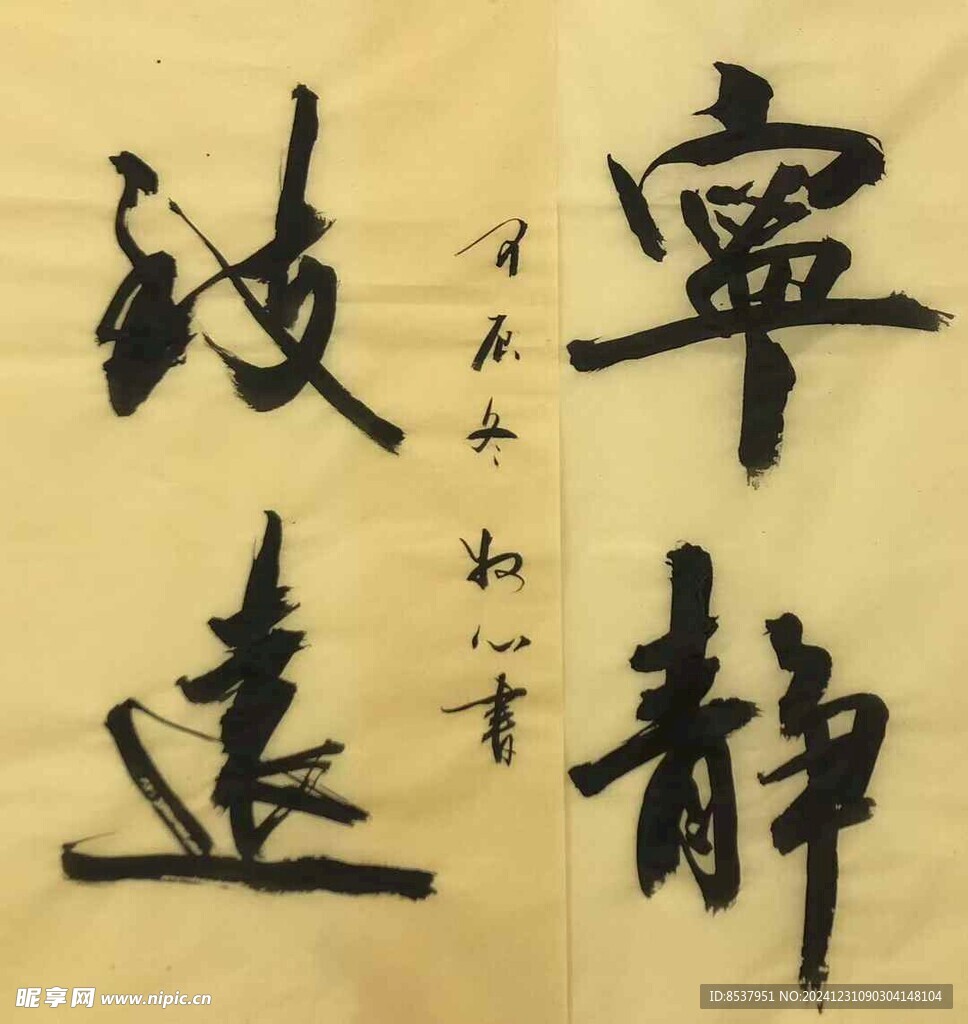 寧静
致遠
甲辰冬牧心書
昵享网 www.nipic.cn
ID:8537951 NO:20241231090304148104